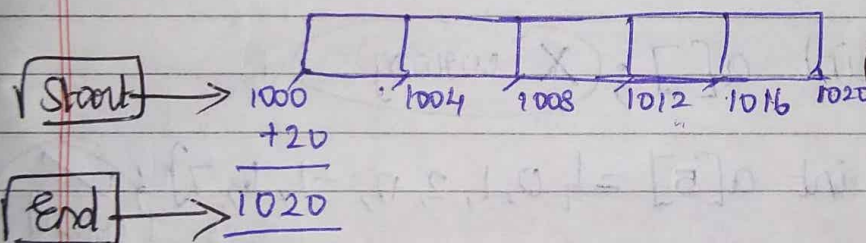 Start → 1000 1004 1008 1012 1016 1020
+20
End → 1020